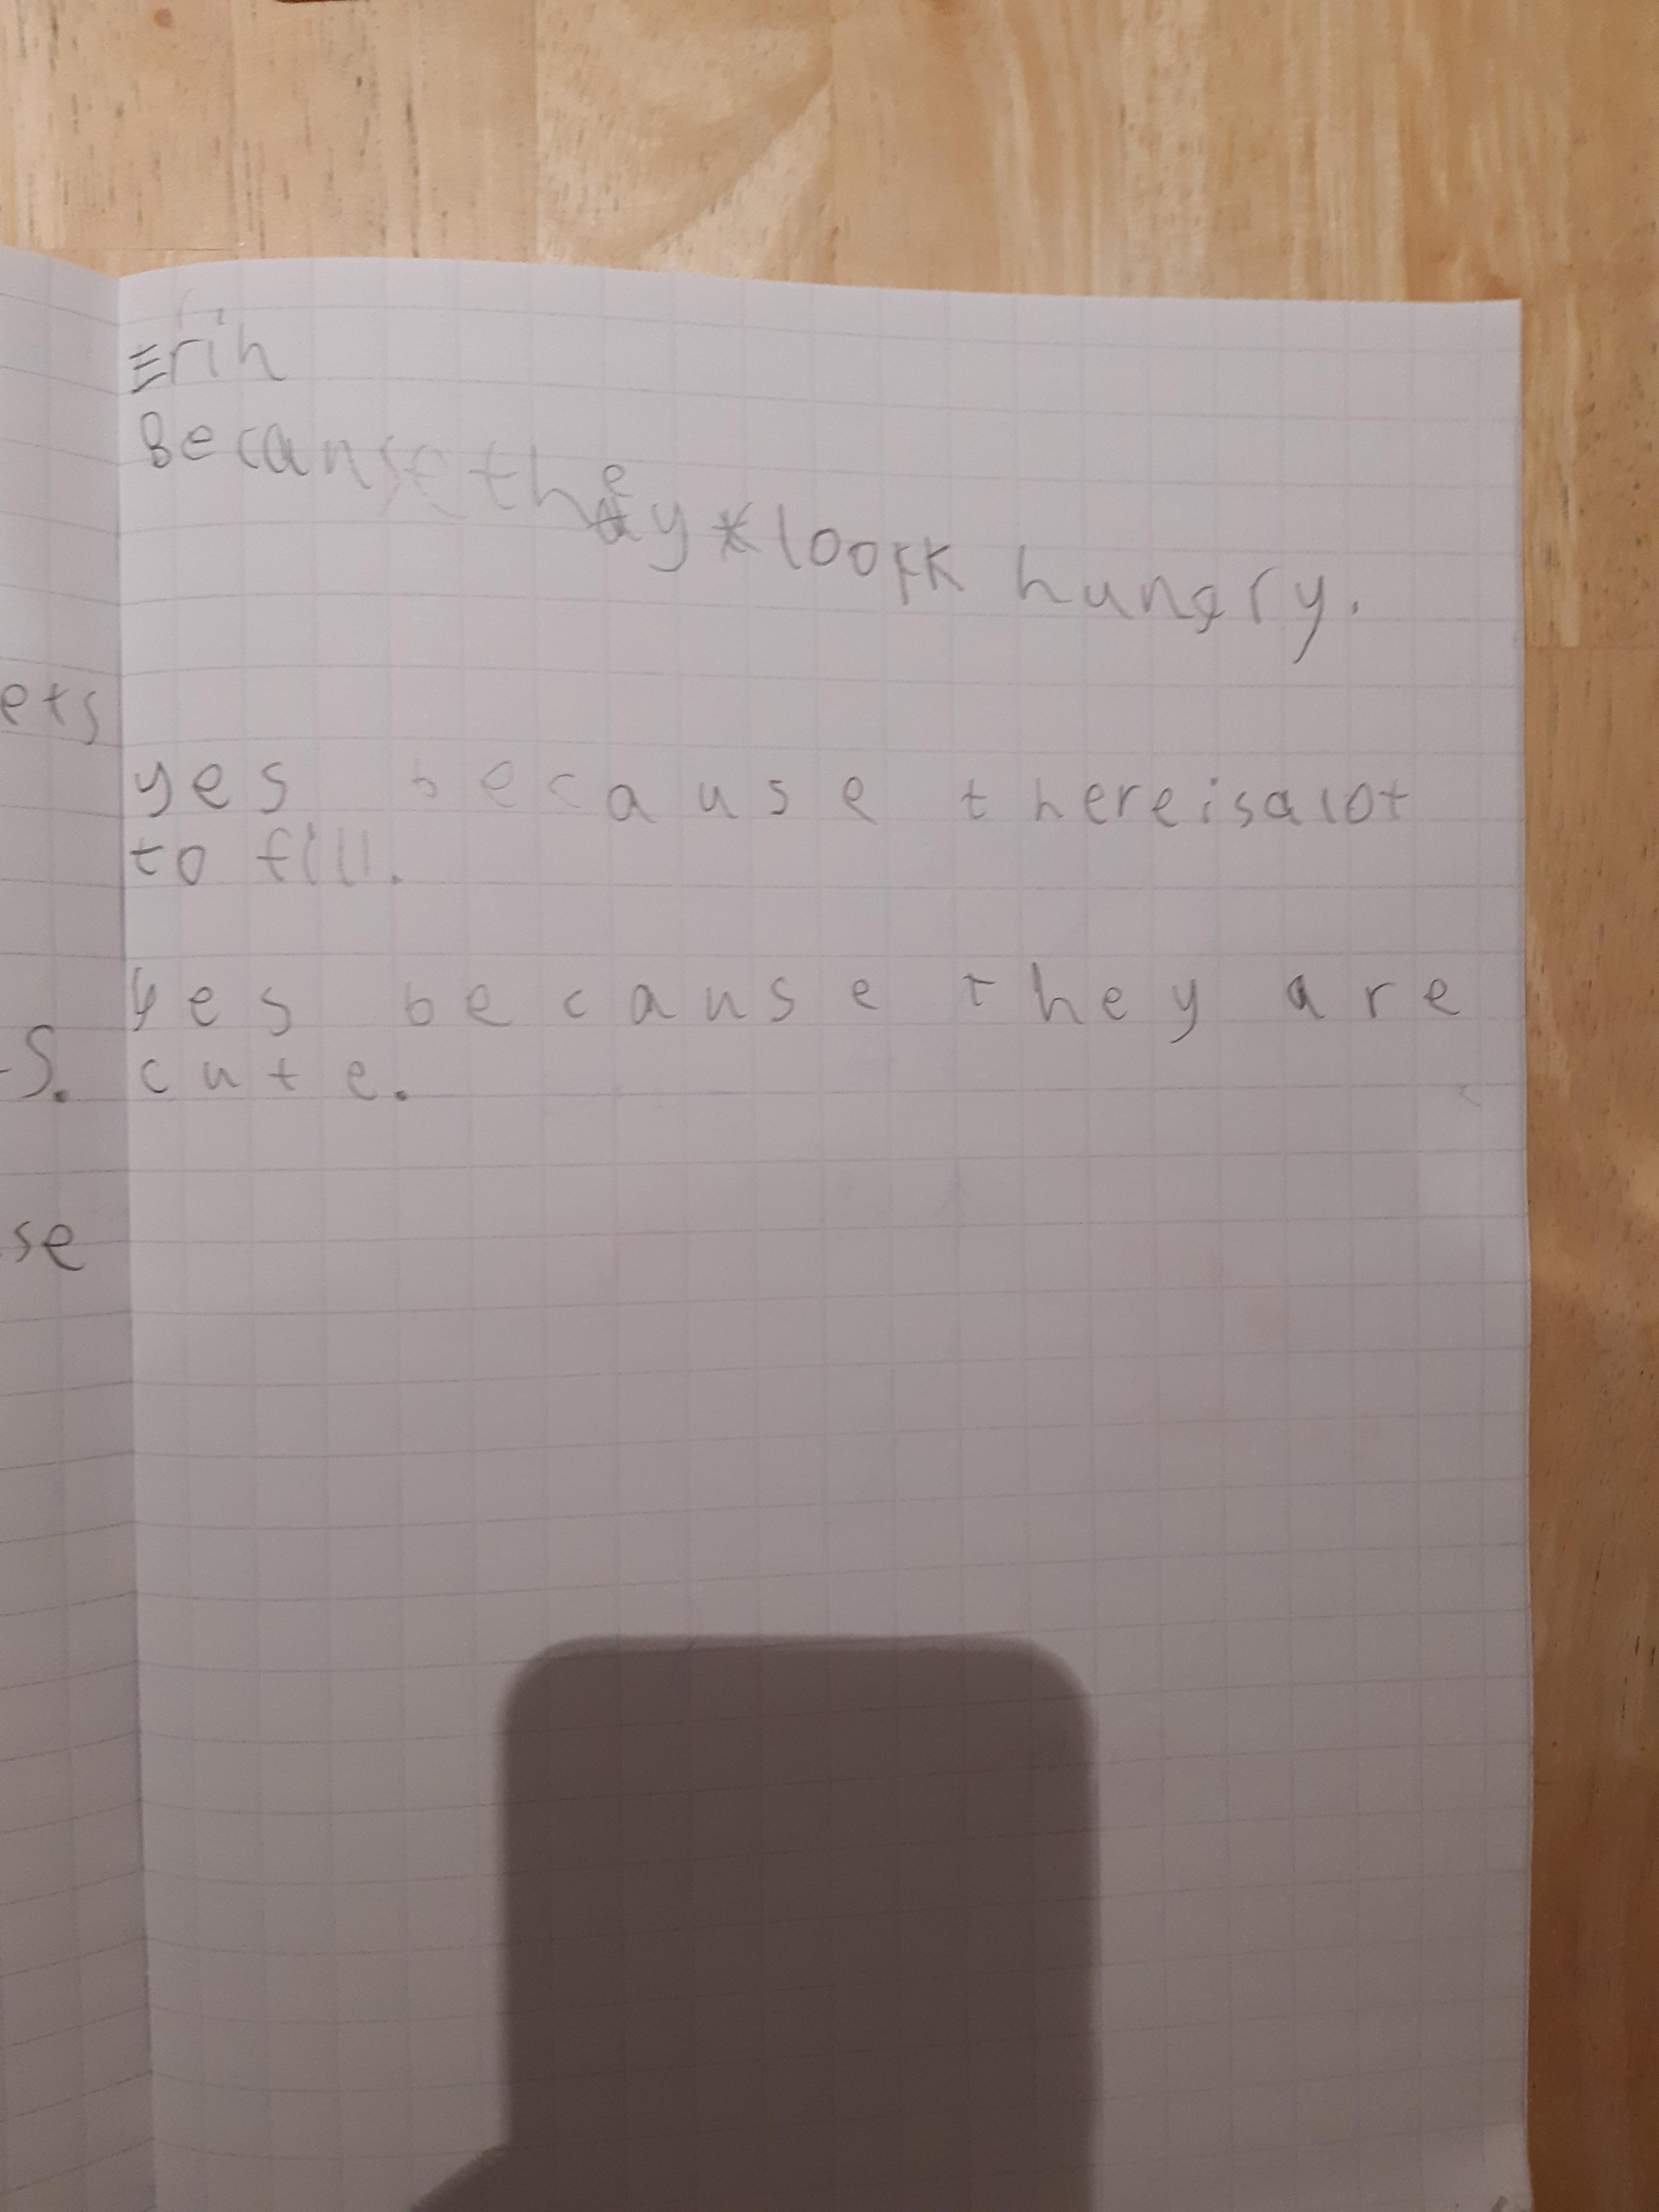 Erin
Because they look hungry.
ets
yes because there is a lot
to fill.
yes because they are
s. cute.
se